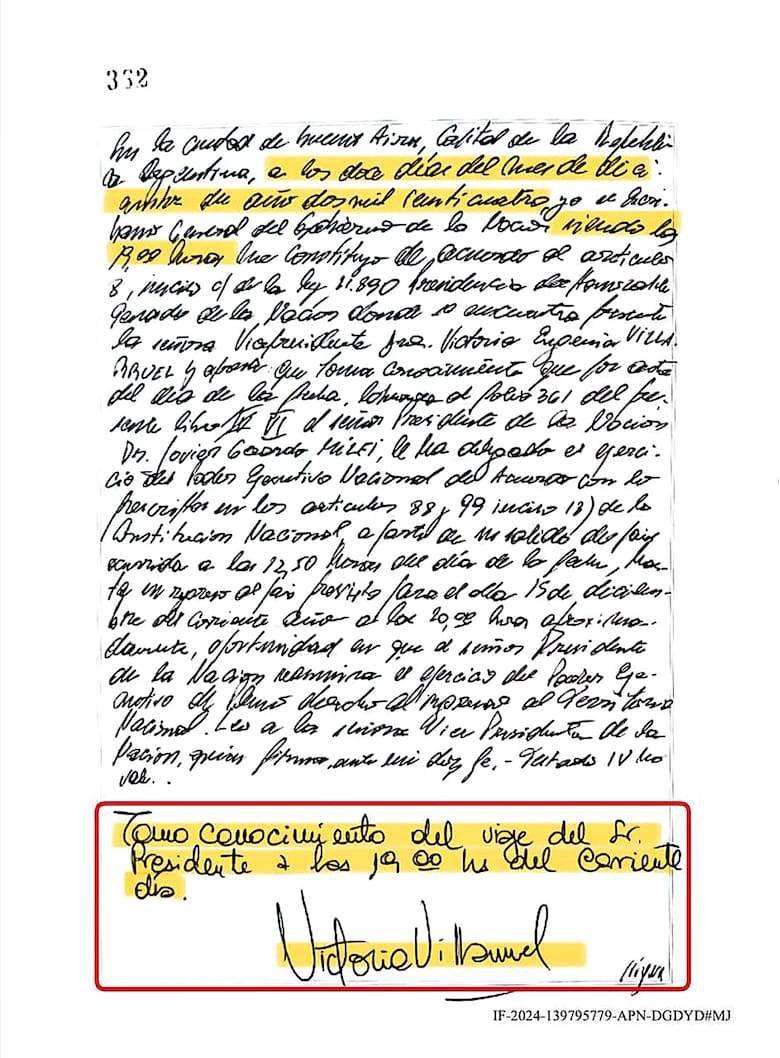 362
En la ciudad de Buenos Aires, Capital de la Repúbli
ca Argentina, a los doce días del mes de dici-
embre de año dos mil veinticuatro, yo el Escri-
bano General del Gobierno de la Nación siendo las
19,00 horas me constituyo de acuerdo al artículo
8, inciso c) de la ley 21.890 Presidencia del Honorable
Senado de la Nación donde se encuentra presente
la señora Vicepresidente Dra. Victoria Eugenia VILLA-
RRUEL y que toma conocimiento que por acta
del día de la fecha, al folio 361 del pre-
sente libro IV VI el señor Presidente de la Nación
Dr. Javier Gerardo MILEI, le ha delegado el ejerci-
cio del Poder Ejecutivo Nacional de Acuerdo con lo
prescripto en los artículos 88 y 99 inciso 18) de la
Constitución Nacional, a partir de su salida del país
ocurrida a las 12,50 horas del día de la fecha, has-
ta su regreso al país previsto para el día 15 de diciem-
bre del corriente año a las 20,00 horas aproxima-
damente, oportunidad en que el señor Presidente
de la Nación reasumirá el ejercicio del Poder Eje-
cutivo de pleno derecho al ingresar al Territorio
Nacional. Leo a la señora Vice Presidenta de la
Nación, quien firma, ante mi doy fe.- Testado IV no
vale.
Tomo conocimiento del viaje del Sr.
Presidente a las 19 00 hs del corriente
día.
Victoria Villarruel
IF-2024-139795779-APN-DGDYD#MJ